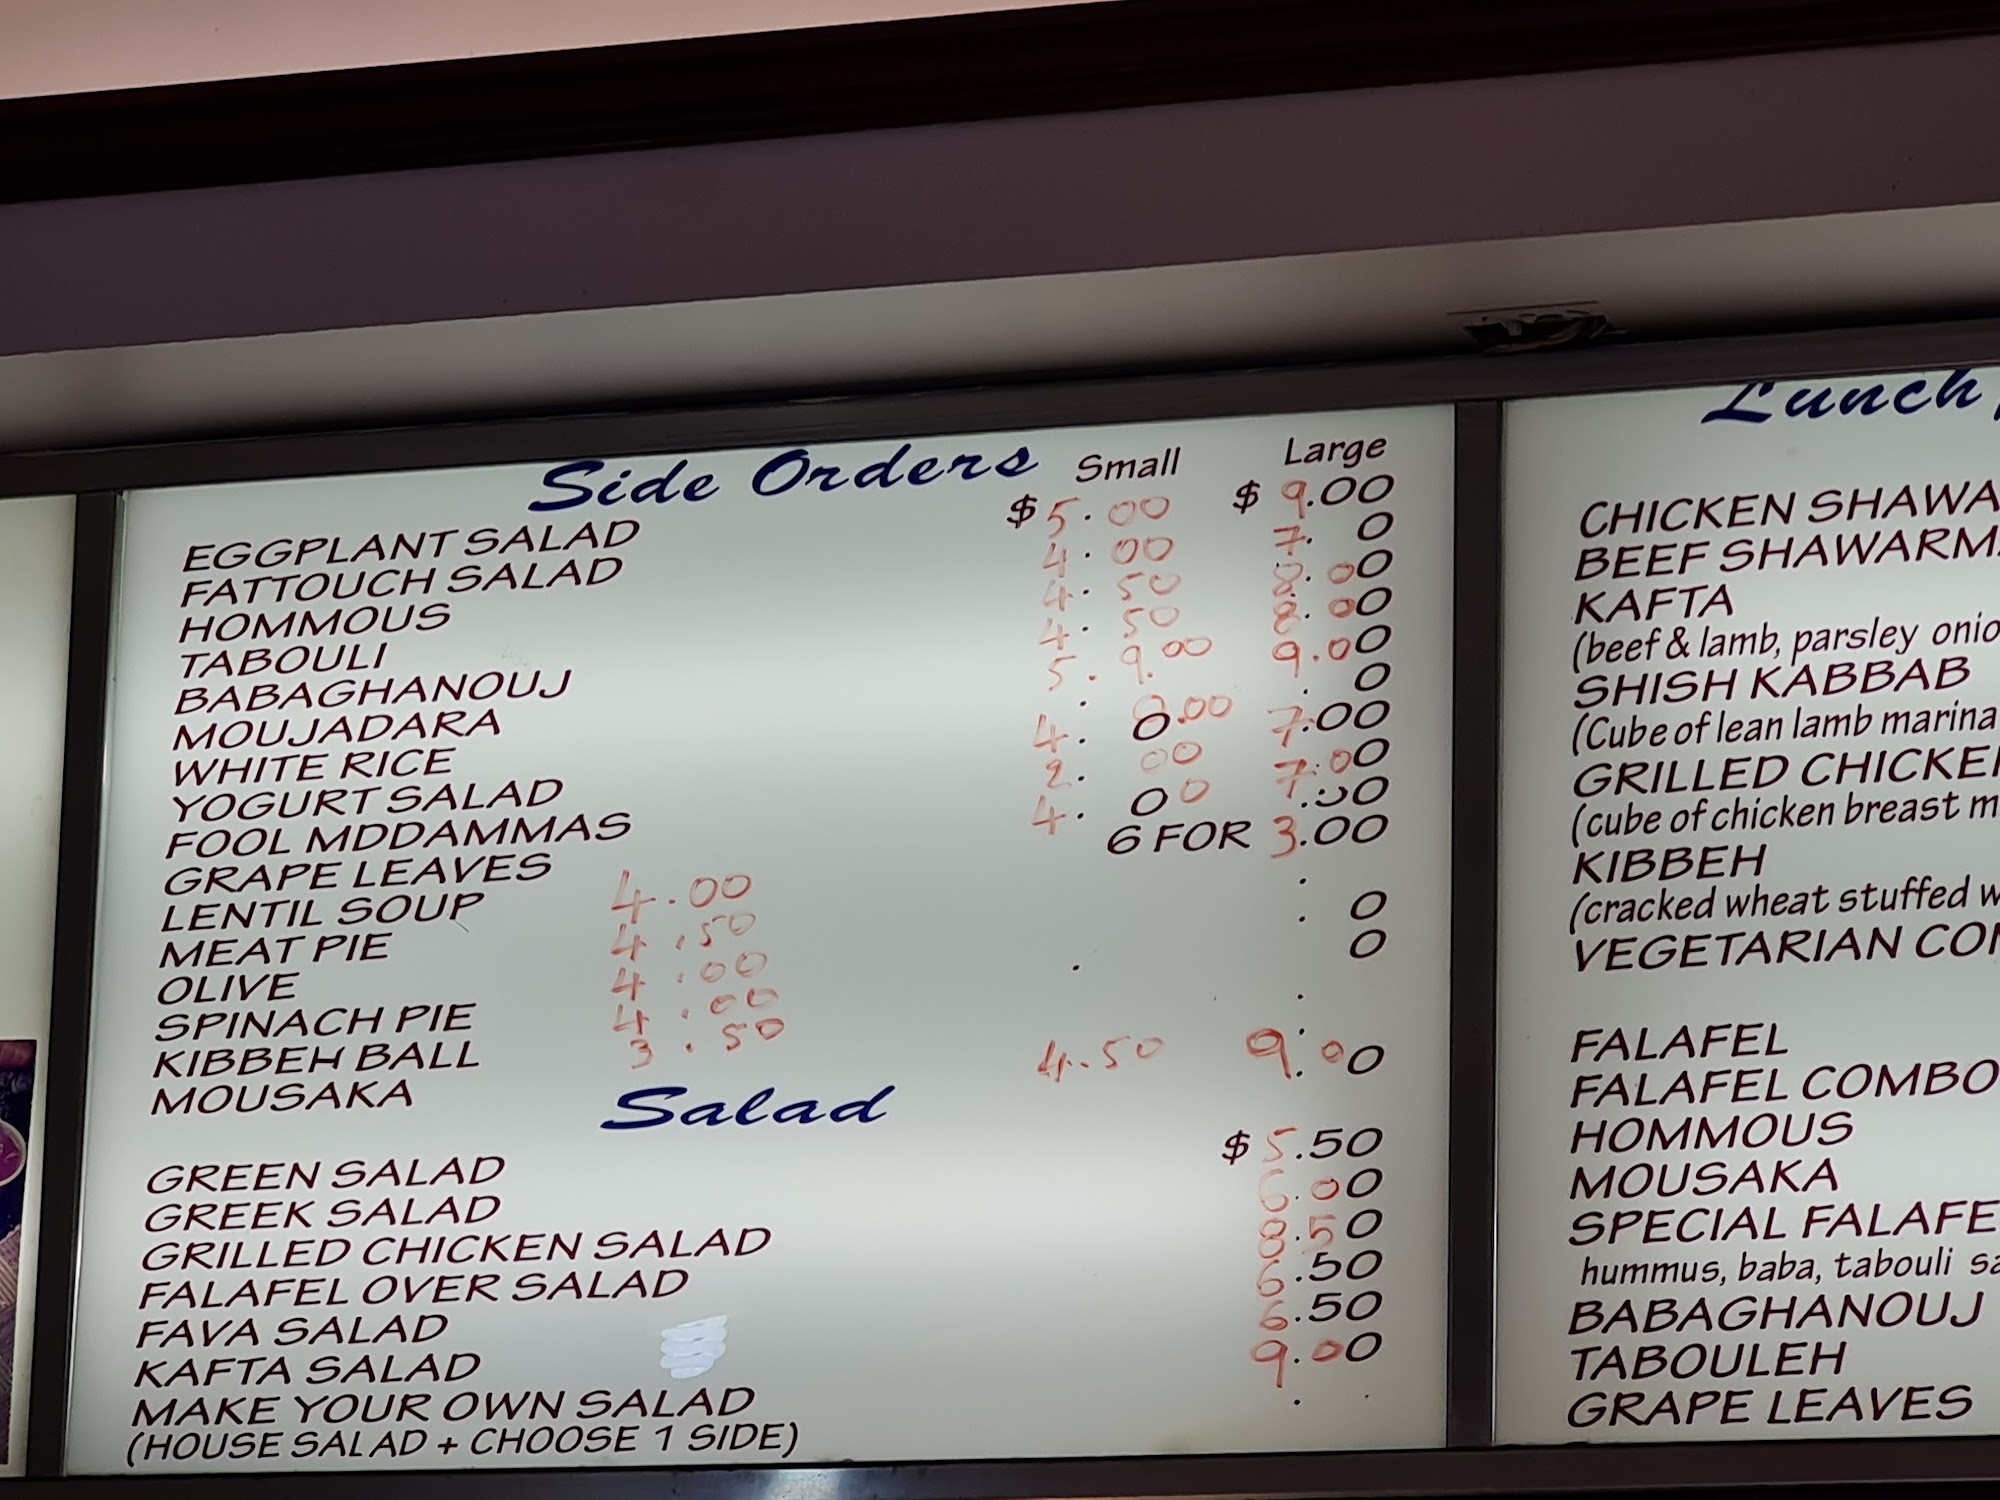 Side Orders Small Large
EGGPLANT SALAD $5.00 $9.00
FATTOUCH SALAD 4.00 7. 0
HOMMOUS 4.50 8.00
TABOULI 4.50 8.00
BABAGHANOUJ 5. 9.00 9.00
MOUJADARA . . 0
WHITE RICE 4. 0 .00 7.00
YOGURT SALAD 2.00 7.00
FOOL MDDAMMAS 4.00 .00
GRAPE LEAVES 6 FOR 3.00
LENTIL SOUP 4.00 .
MEAT PIE 4.50 . 0
OLIVE 4.00 . 0
SPINACH PIE 4.00 .
KIBBEH BALL 3.50 .
MOUSAKA 4.50 9.00
Salad
GREEN SALAD $5.50
GREEK SALAD 6.00
GRILLED CHICKEN SALAD 8.50
FALAFEL OVER SALAD 6.50
FAVA SALAD 6.50
KAFTA SALAD 9.00
MAKE YOUR OWN SALAD .
(HOUSE SALAD + CHOOSE 1 SIDE)
Lunch
CHICKEN SHAWA
BEEF SHAWARM
KAFTA
(beef & lamb, parsley onio
SHISH KABBAB
(Cube of lean lamb marina
GRILLED CHICKE
(cube of chicken breast m
KIBBEH
(cracked wheat stuffed w
VEGETARIAN CO
FALAFEL
FALAFEL COMBO
HOMMOUS
MOUSAKA
SPECIAL FALAFE
hummus, baba, tabouli sa
BABAGHANOUJ
TABOULEH
GRAPE LEAVES